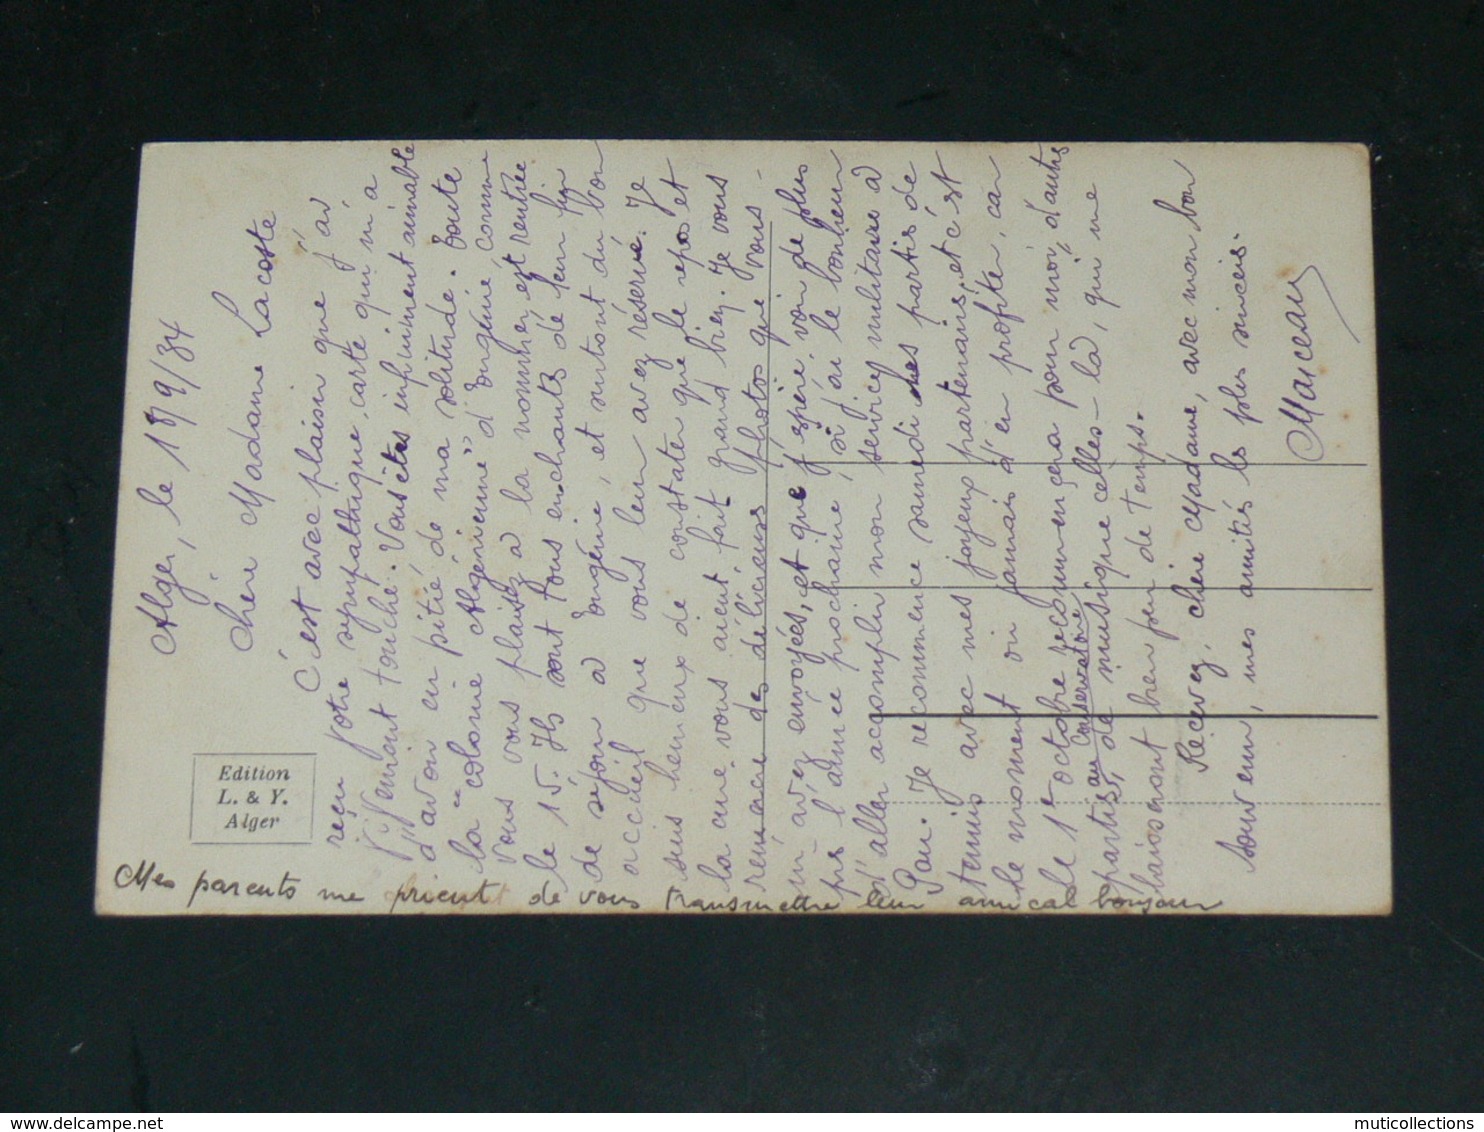 Alger, le 18/9/34
Chère Madame Lacoste
C'est avec plaisir que j'ai
reçu votre sympathique carte qui m'a
vivement touché. Vous êtes infiniment aimable
d'avoir eu pitié de ma solitude. Toute
la "colonie Algérienne" d'Eugénie, comme
vous vous plaisez à la nommer, est rentrée
le 15. Ils sont tous enchantés de leur
de séjour à Eugénie, et surtout du bon
accueil que vous leur avez réservé. Je
suis heureux de constater que le repos et
la cure vous aient fait grand bien. Je vous
remercie des délicieuses photos que vous
m'avez envoyées, et que j'espère voir de plus
près l'année prochaine, si j'ai le bonheur
d'aller accomplir mon service militaire à
Pau. Je recommence samedi mes parties de
tennis avec mes joyeux partenaires, et c'est
le moment ou jamais d'en profiter, car
le 1er octobre recommencera pour moi, d'autres
parties, de musique celles-là, qui me
au Conservatoire
laisseront bien peu de temps.
Recevez, chère Madame, avec mon bon
souvenir, mes amitiés les plus sincères.
Marceau
Mes parents me prient de vous transmettre leur amical bonjour
Edition
L. & Y.
Alger
muticollections